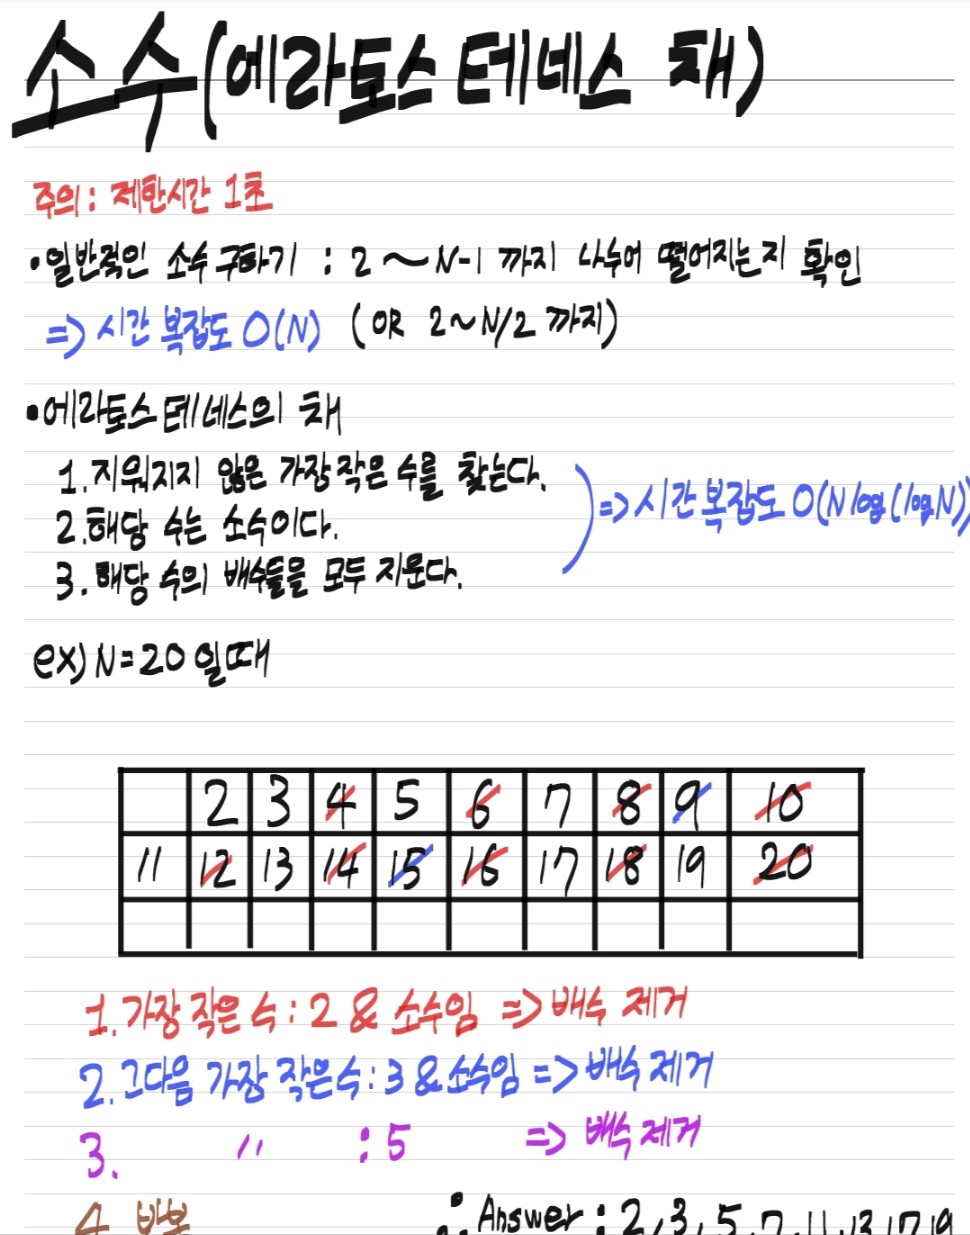 소수(에라토스테네스 채)
주의: 제한시간 1초
·일반적인 소수 구하기 : 2~N-1 까지 나누어 떨어지는지 확인
=> 시간 복잡도 O(N) (OR 2~N/2 까지)
·에라토스테네스의 채
1. 지워지지 않은 가장 작은 수를 찾는다.
2. 해당 수는 소수이다.
3. 해당 수의 배수들을 모두 지운다.
=> 시간 복잡도 O(N log (log N))
ex) N=20 일때
2 3 4 5 6 7 8 9 10
11 12 13 14 15 16 17 18 19 20
1. 가장 작은 수 : 2 & 소수임 => 배수 제거
2. 그다음 가장 작은수 : 3 & 소수임 => 배수 제거
3. " : 5 => 배수 제거
4. 반복 ∴ Answer : 2, 3, 5, 7, 11, 13, 17, 19